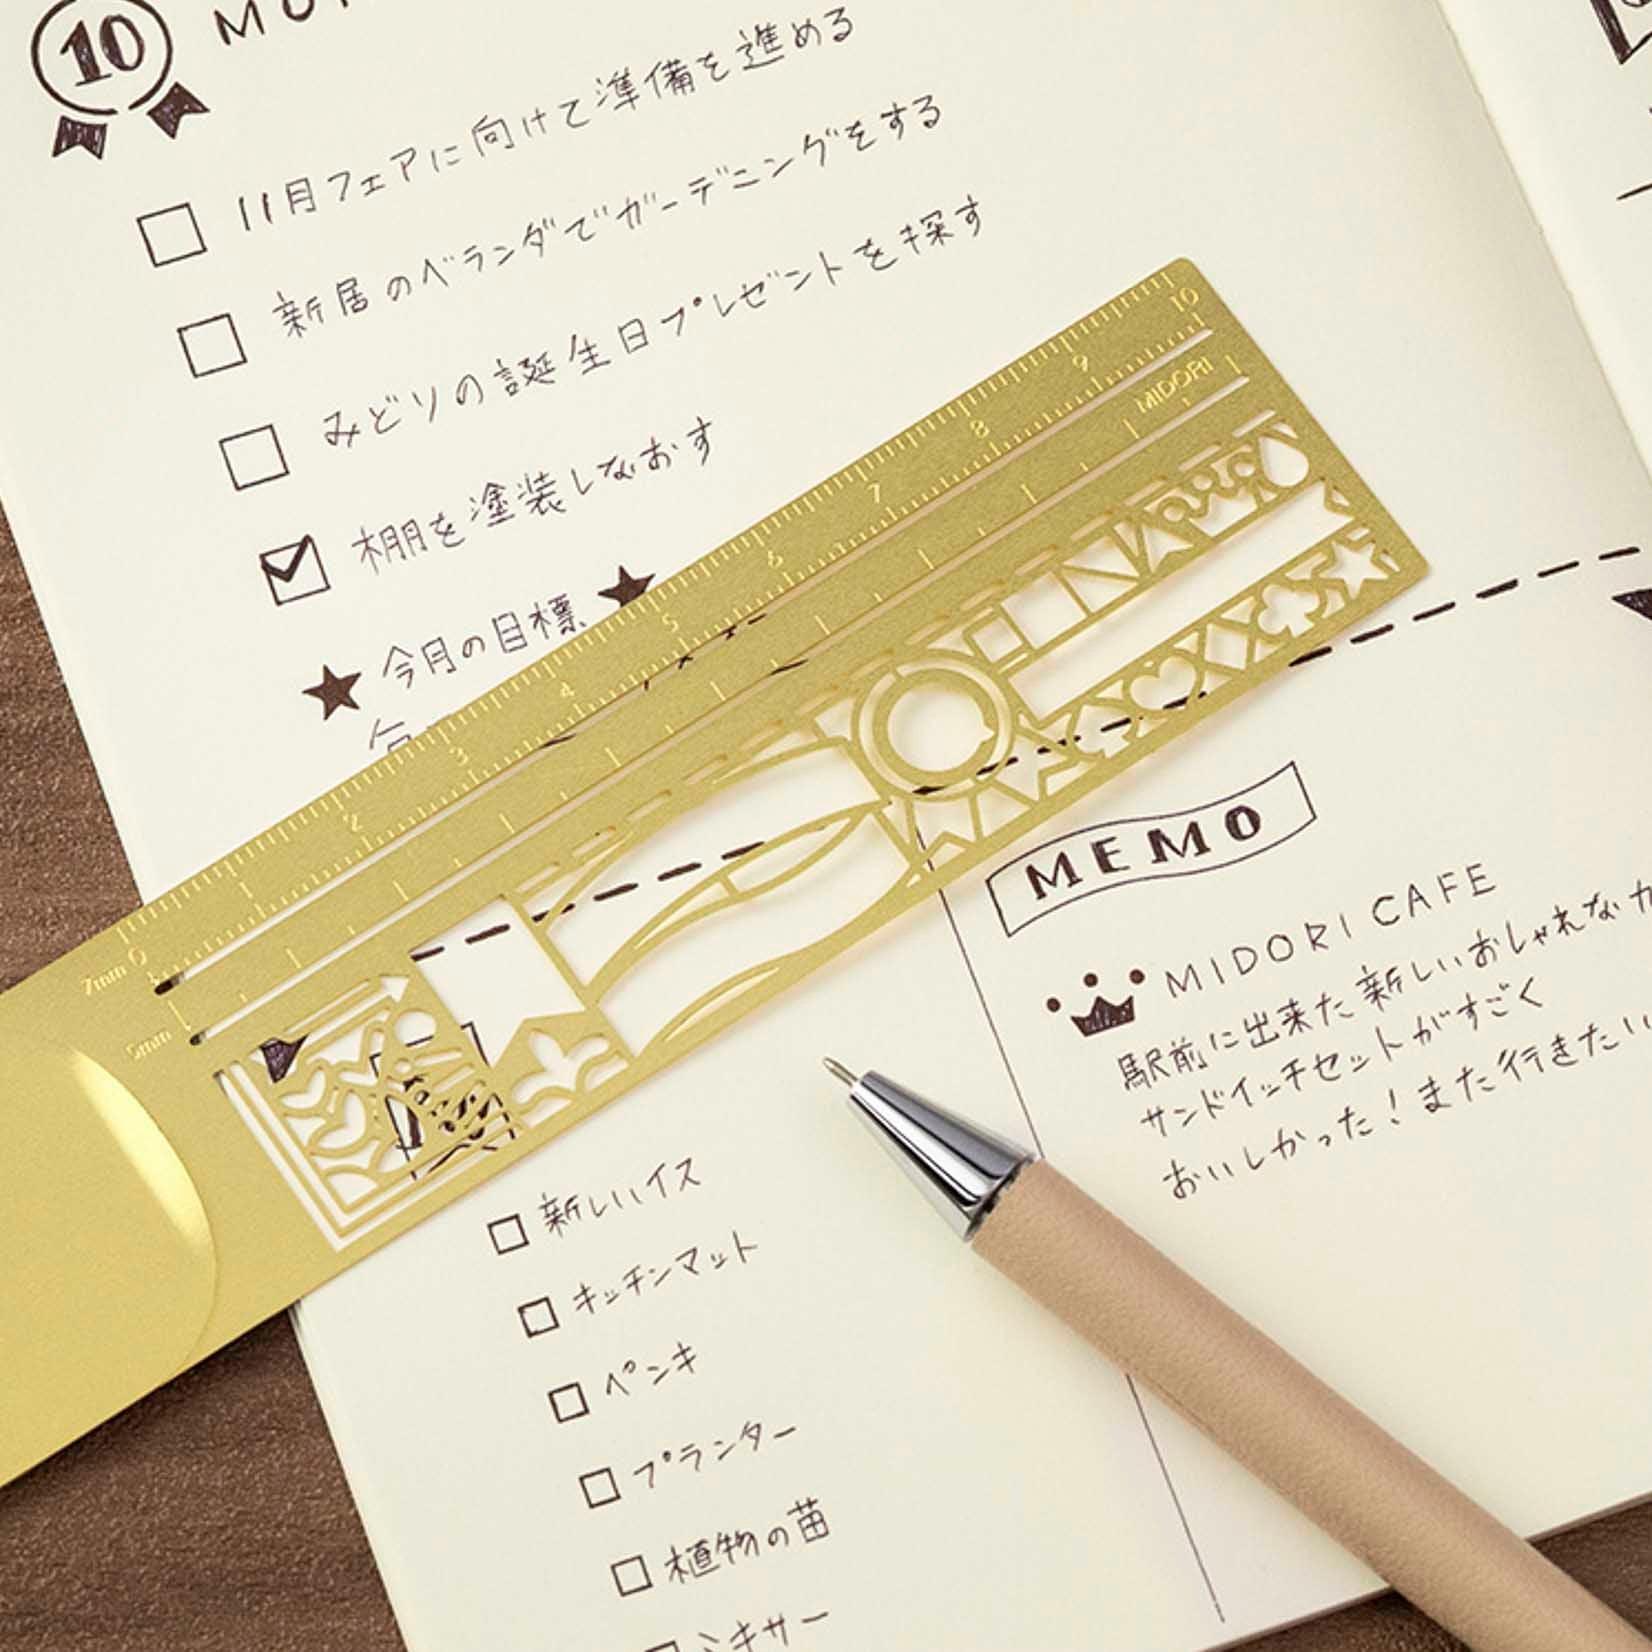 10
11月フェアに向けて準備を進める
新居のベランダでガーデニングをする
みどりの誕生日プレゼントを探す
棚を塗装しなおす
今月の目標
0 1 2 3 4 5 6 7 8 9 10
7mm
5mm
MIDORI
新しいイス
キッチンマット
ペンキ
プランター
植物の苗
ミキサー
MEMO
MIDORI CAFE
駅前に出来た新しいおしゃれなカ
サンドイッチセットがすごく
おいしかった!また行きたい